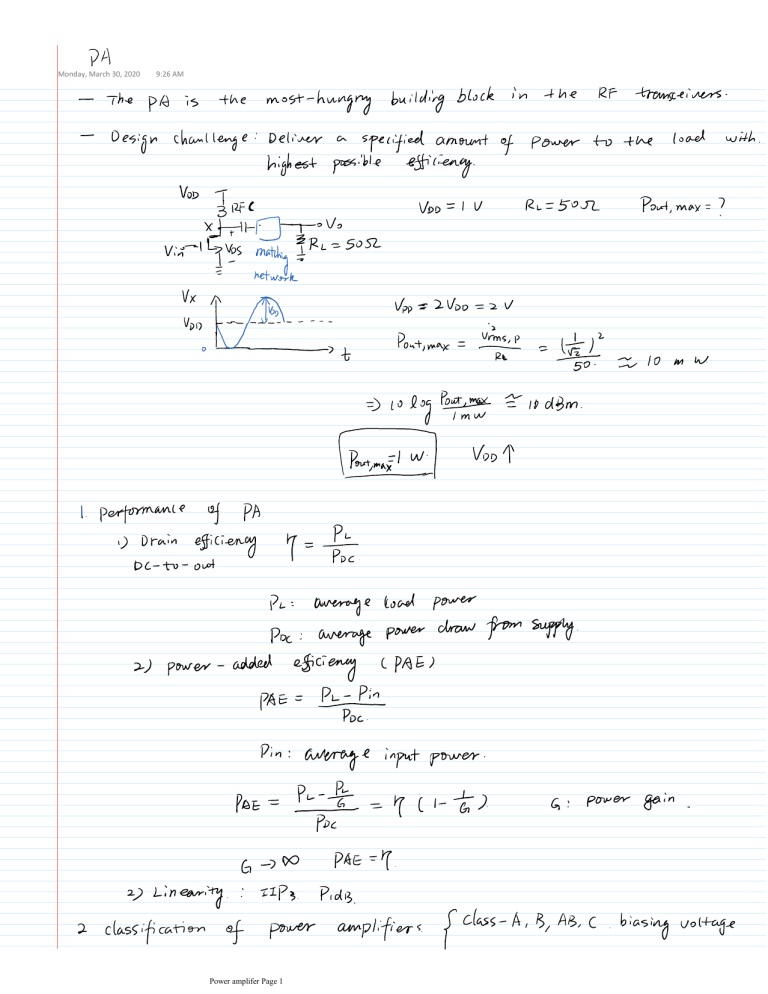 PA
Monday, March 30, 2020 9:26 AM
— The PA is the most-hungry building block in the RF transceivers.
— Design chanllenge: Deliver a specified amount of power to the load with
highest possible efficiency.
VDD
RFC
X + Vo
Vin VDS matching RL = 50Ω
- network
VDD = 1 V RL = 50Ω Pout, max = ?
Vx
VDD VDD
0 t
Vpp = 2VDD = 2 V
Pout, max = V²rms,p / RL = (1/√2)² / 50 ≈ 10 mW
=> 10 log Pout, max / 1 mW ≅ 10 dBm.
Pout,max = 1 W. VDD ↑
1. performance of PA
1) Drain efficiency η = PL / PDC
DC-to-out
PL: average load power
PDC: average power draw from supply.
2) power-added efficiency (PAE)
PAE = PL - Pin / PDC.
Pin: average input power.
PAE = PL - PL/G / PDC = η (1 - 1/G) G: power gain.
G → ∞ PAE = η.
2) Linearity: IIP3 P1dB.
2 classification of power amplifiers. { Class-A, B, AB, C. biasing voltage
Power amplifer Page 1